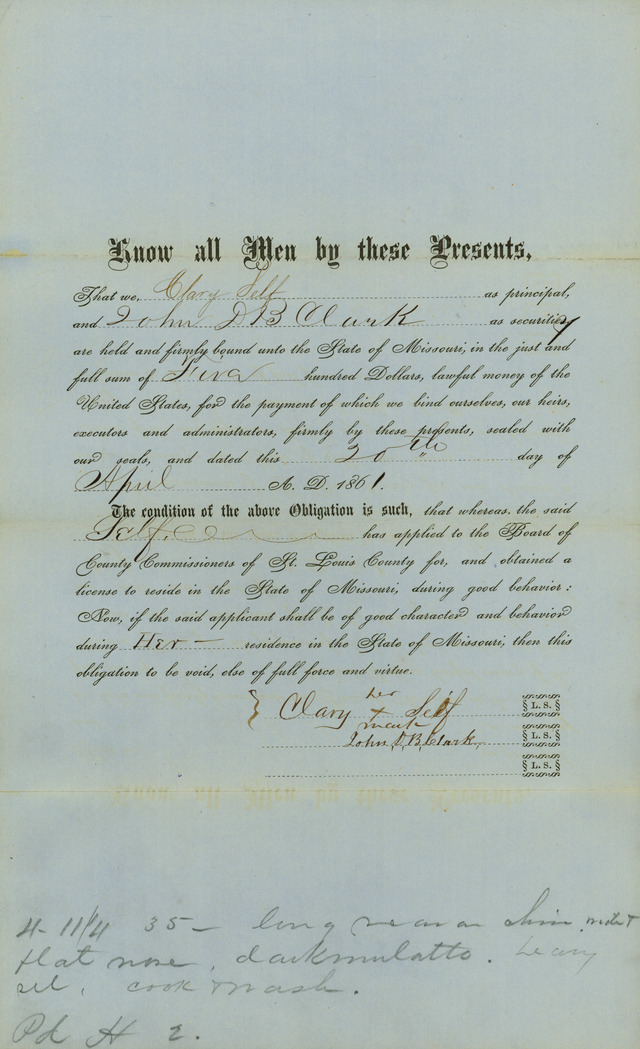 Know all Men by these Presents,
That we, Clary Self as principal,
and John D B Clark as security
are held and firmly bound unto the State of Missouri, in the just and
full sum of Five hundred Dollars, lawful money of the
United States, for the payment of which we bind ourselves, our heirs,
executors and administrators, firmly by these presents, sealed with
our seals, and dated this 20th day of
April A. D. 1861.
The condition of the above Obligation is such, that whereas, the said
Self. has applied to the Board of
County Commissioners of St. Louis County for, and obtained a
license to reside in the State of Missouri, during good behavior:
Now, if the said applicant shall be of good character and behavior
during Her — residence in the State of Missouri, then this
obligation to be void, else of full force and virtue.
her
Clary + Self L. S.
mark
John D. B. Clark L. S.
L. S.
4-11¼ 35 — long on chin
flat nose, dark mulatto.
cook & wash.
Pd H 2.